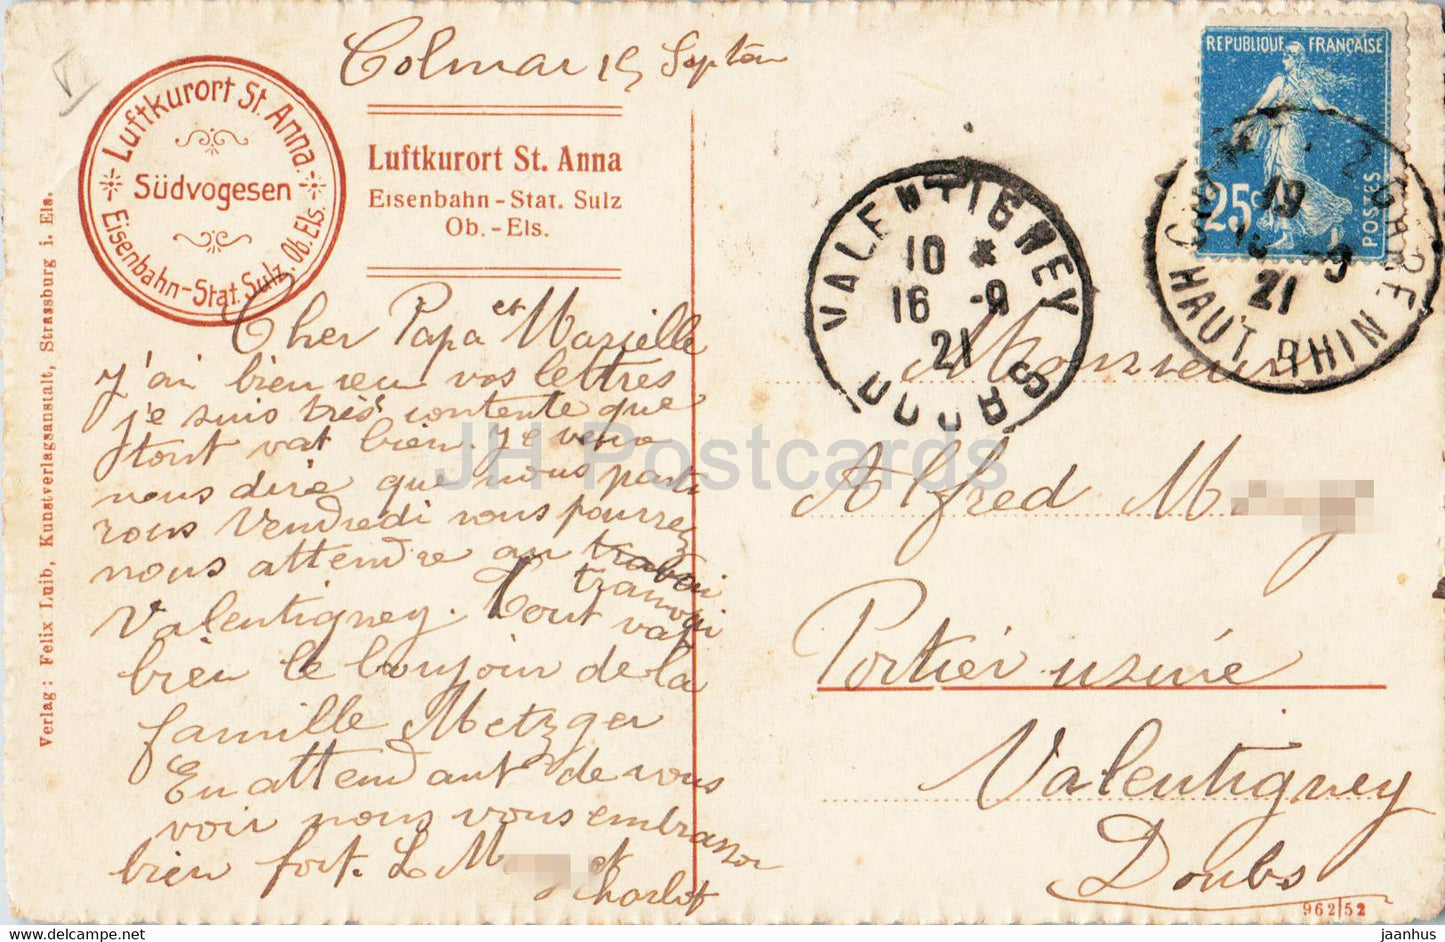 Colmar 15 Septem
Luftkurort St. Anna
Südvogesen
Eisenbahn-Stat. Sulz, Ob. Els.
Luftkurort St. Anna
Eisenbahn-Stat. Sulz
Ob.-Els.
Verlag: Felix Luib, Kunstverlagsanstalt, Strassburg i. Els.
Cher Papa et Marielle
j'ai bien reu vos lettres
je suis très contente que
tout vat bien. Je veux
nous dire que nous parti
rons Vendredi vous pourrez
nous attendre au
tramvai
Valentigney. Tout vat
bien le bonjour de la
famille Metzger
En attendant de vous
voir nous vous embrasson
bien fort. L M et
Charlot
REPUBLIQUE FRANÇAISE
25c
POSTES
COLMAR 2 GARE
19
16 -9
21
HAUT RHIN
VALENTIGNEY
10 *
16 -9
21
DOUBS
Monsieur
Alfred M
Portier usiné
Valentigney
Doubs
962/52
JH Postcards
jaanhus www.delcampe.net